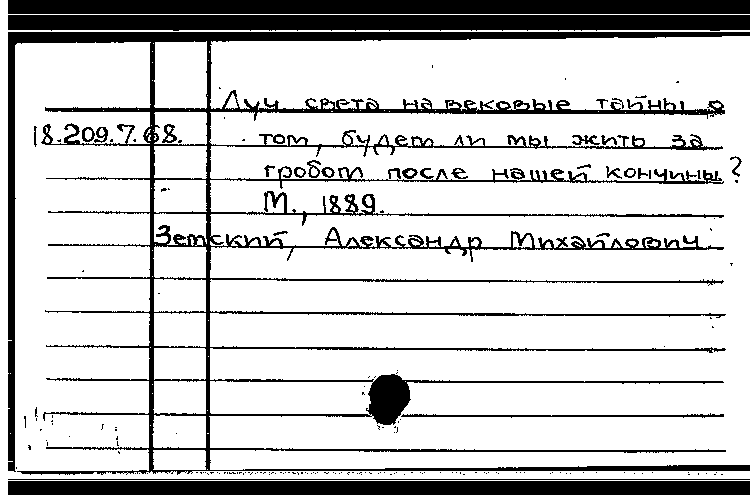 Луч света на вековые тайны о
18.209.7.68. том, будем ли мы жить за
гробом после нашей кончины?
М., 1889.
Земский, Александр Михайлович.